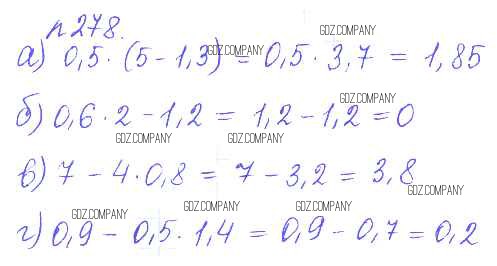 n 278.
GDZ.COMPANY
а) 0,5 · (5 - 1,3) = 0,5 · 3,7 = 1,85
GDZ.COMPANY
GDZ.COMPANY
б) 0,6 · 2 - 1,2 = 1,2 - 1,2 = 0
GDZ.COMPANY GDZ.COMPANY
в) 7 - 4 · 0,8 = 7 - 3,2 = 3,8
GDZ.COMPANY
GDZ.COMPANY GDZ.COMPANY GDZ.COMPANY
г) 0,9 - 0,5 · 1,4 = 0,9 - 0,7 = 0,2